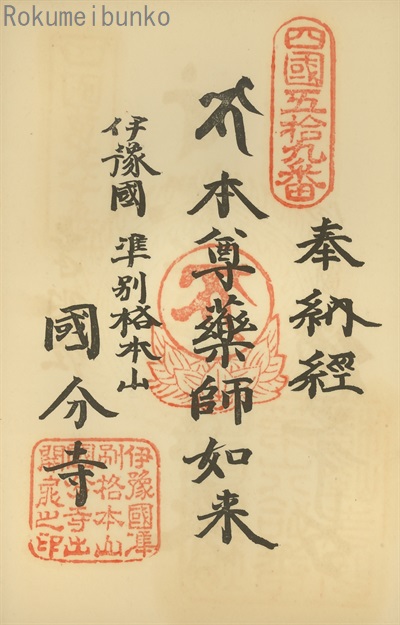 Rokumeibunko
四國五拾九番
奉納經
本尊藥師如来
伊豫國 準別格本山
國分寺
伊豫國準
別格本山
國分寺出
開帳之印